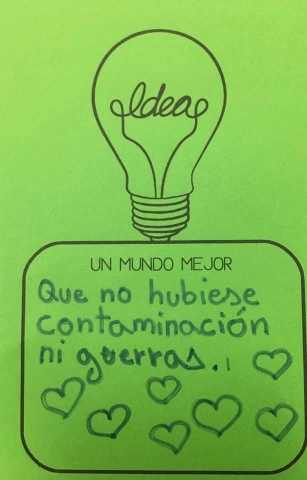 Idea
UN MUNDO MEJOR
Que no hubiese
contaminación
ni guerras.